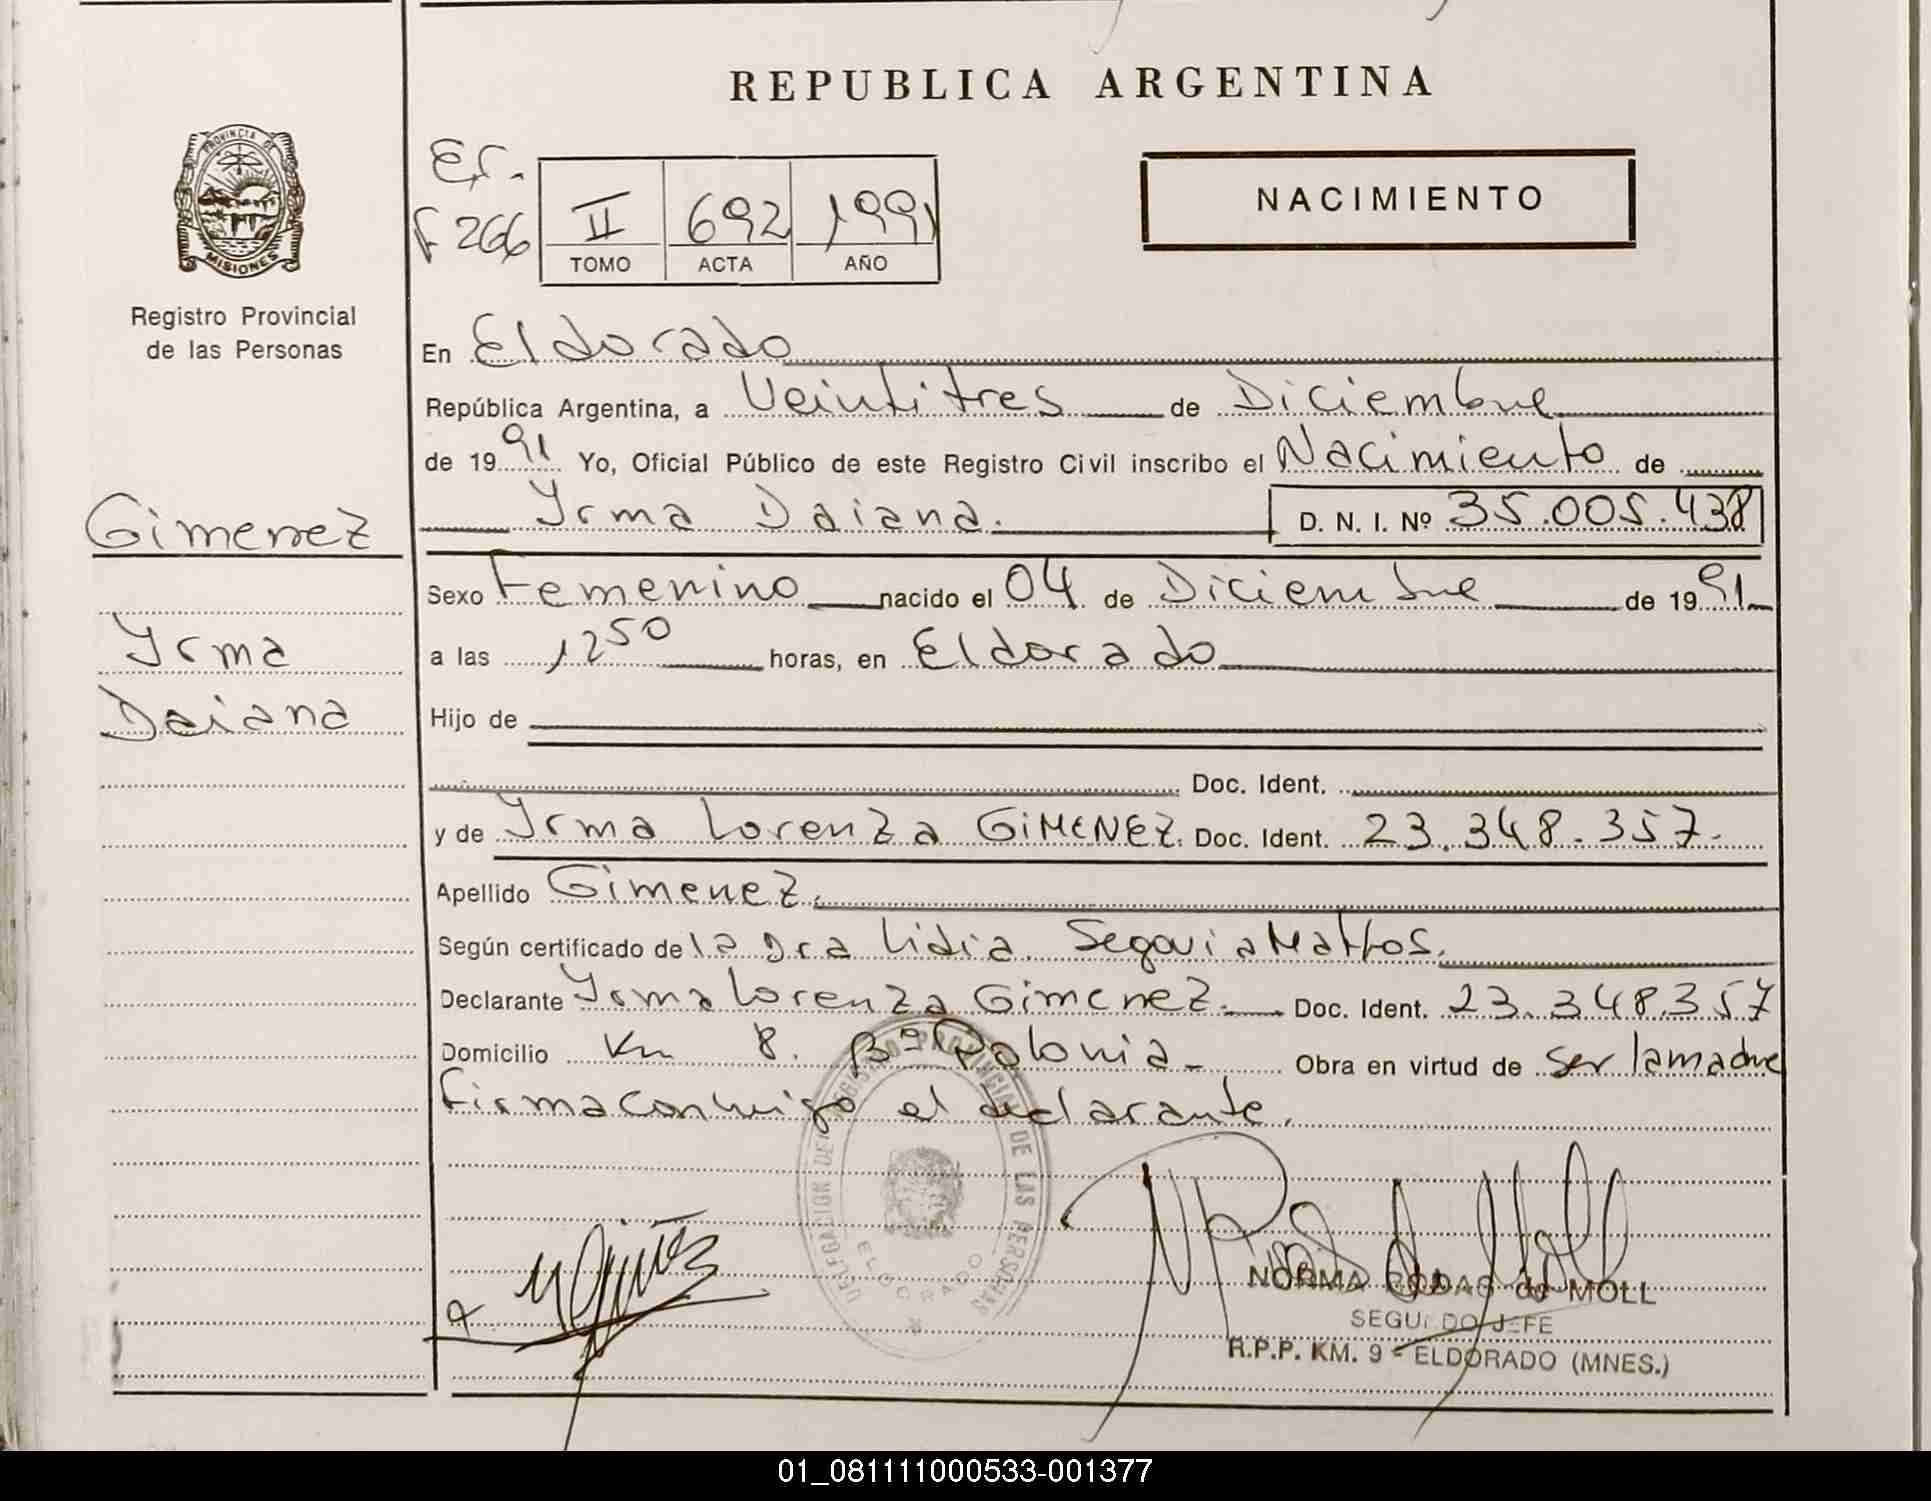 REPUBLICA ARGENTINA
PROVINCIA DE
MISIONES
Registro Provincial
de las Personas
Er.
F 266
II 692 1991
TOMO ACTA AÑO
NACIMIENTO
En Eldorado
República Argentina, a Veintitres de Diciembre
de 1991 Yo, Oficial Público de este Registro Civil inscribo el Nacimiento de
Yrma Daiana. D. N. I. Nº 35.005.438
Gimenez
Yrma
Daiana
Sexo Femenino nacido el 04 de Diciembre de 1991
a las 1250 horas, en Eldorado
Hijo de
Doc. Ident.
y de Yrma Lorenza GiMENEZ. Doc. Ident. 23.348.357.
Apellido Gimenez.
Según certificado de la Dra Lidia Segovia Mattos.
Declarante Yrma Lorenza Gimenez. Doc. Ident. 23.348.357
Domicilio Km 8. Bº Polonia Obra en virtud de ser la madre
Firma conmigo el declarante.
DELEGACION DEL REGISTRO PROVINCIAL DE LAS PERSONAS
ELDORADO
NORMA RODAS de MOLL
SEGUNDO JEFE
R.P.P. KM. 9 - ELDORADO (MNES.)
01_081111000533-001377